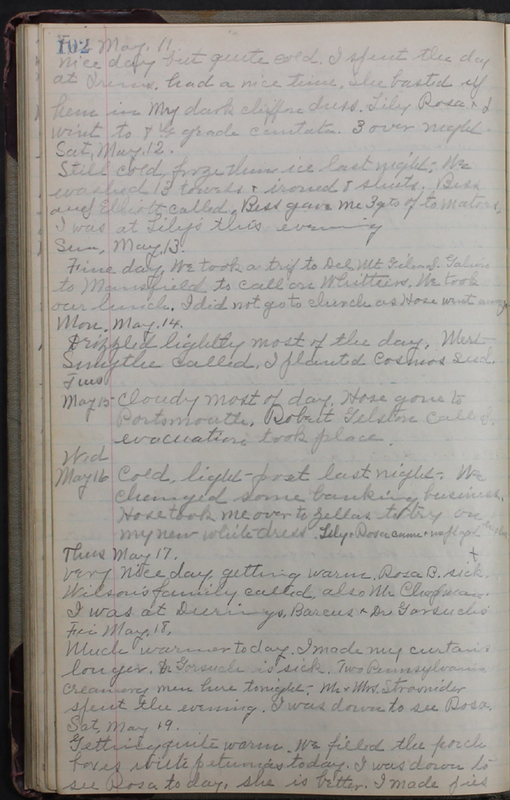 102 May. 11.
Nice day but quite cold. I spent the day
at Irenes, had a nice time, she basted up
hem in my dark chiffon dress. Lily Rosa & I
went to 8th grade cantata. 3 over night.
Sat, May. 12.
Still cold, froze thin ice last night. We
washed 13 towels & ironed 8 shirts. Bess
and Elliott called, Bess gave me 3 qts of tomatoes,
I was at Lily's this evening
Sun, May. 13.
Fine day, We took a trip to Del. Mt. Gilead, Galion
to Mansfield to call on Whittiers. We took
our lunch. I did not go to church as Hose went away
Mon, May. 14.
Drizzled lightly most of the day. Mers
Smythe called. I planted Cosmos seed.
Tues
May 15 Cloudy most of day, Hose gone to
Portsmouth. Robert Gelston called.
evacuation took place.
Wed
May 16 Cold, light frost last night. We
changed some banking business.
Hose took me over to Zellas to try on
my new white dress. Lily & Rosa came
Thus May 17.
Very nice day, getting warm. Rosa B. sick.
Wilsons family called, also Mr. Chapman.
I was at Barcus & Dr Gorsuchs
Fri May, 18.
Much warmer today. I made my curtains
longer. Dr Gorsuch is sick. Two Pennsylvania
creamery men here tonight. Mr & Mrs. Strosnider
spent the evening. I was down to see Rosa.
Sat, May 19.
Getting quite warm. We filled the porch
boxes white petunias today. I was down to
see Rosa today, she is better. I made pies